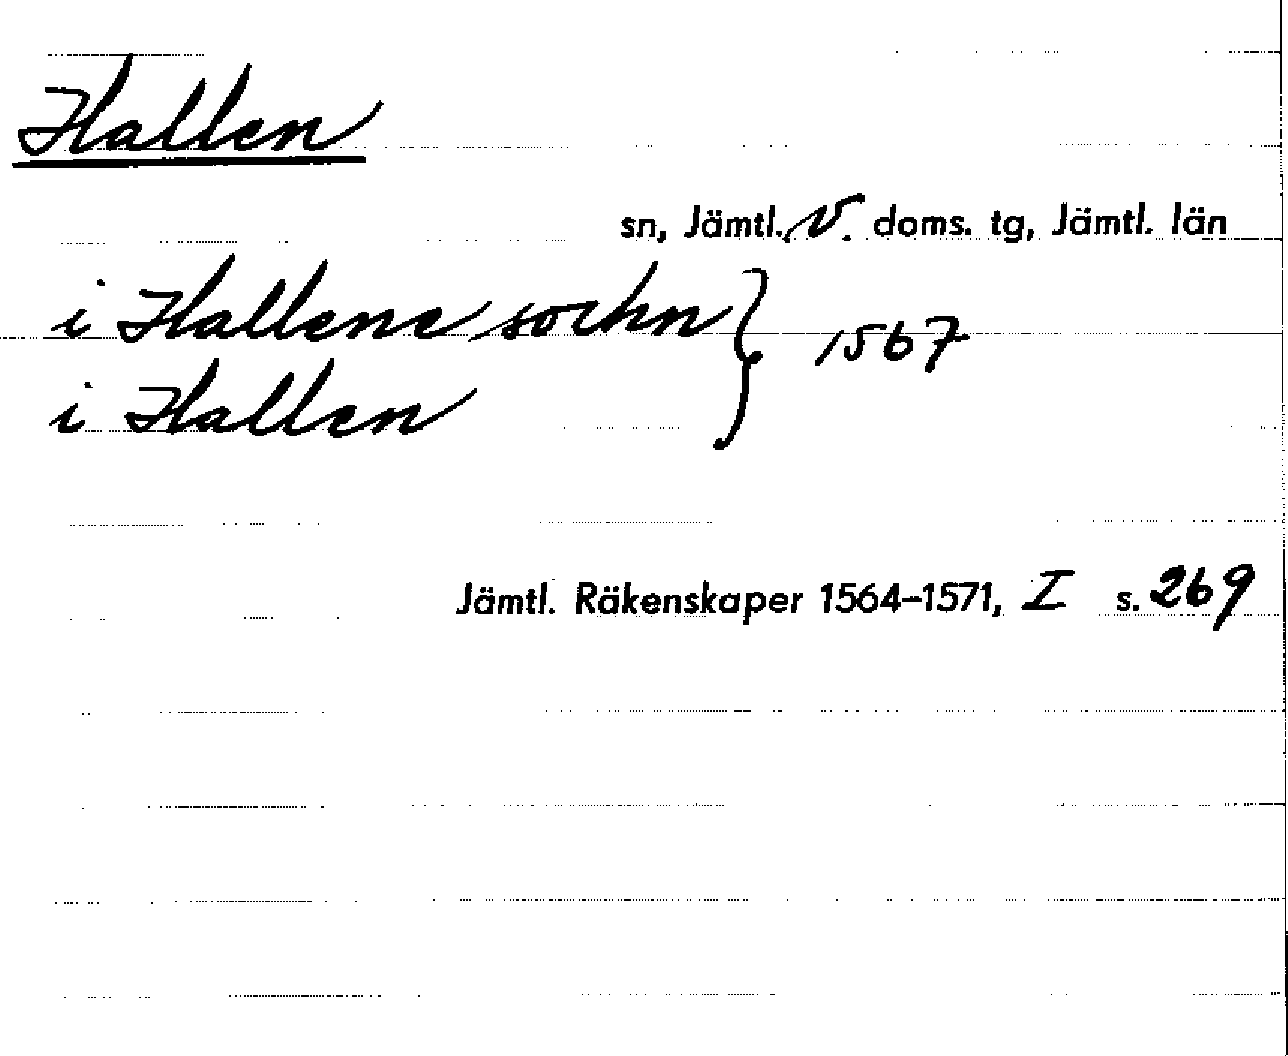 Hallen
sn, Jämtl. V. doms. tg, Jämtl. län
i Hallene sochn } 1567
i Hallen
Jämtl. Räkenskaper 1564-1571, I s. 269